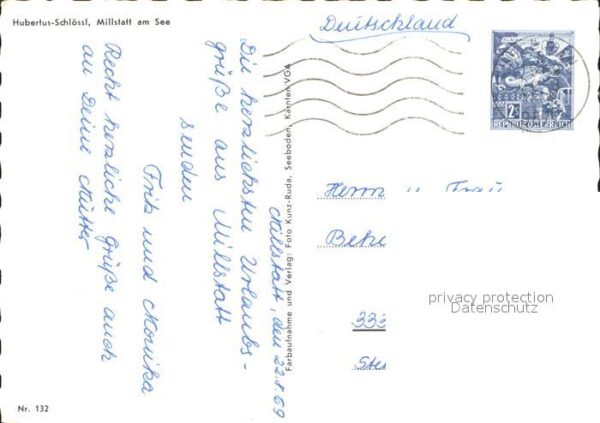 Hubertus-Schlössl, Millstatt am See
Deutschland
2S
REPUBLIK ÖSTERREICH
Millstatt, den 22.8.69
Die herzlichsten Urlaubs-
grüße aus Millstatt
senden
Fritz und Monika
Recht herzliche Grüße auch
an Deine Mutter
Farbaufnahme und Verlag: Foto Kunz-Ruda, Seeboden, Kärnten VGA
Herrn u. Frau
333
privacy protection
Datenschutz
Nr. 132